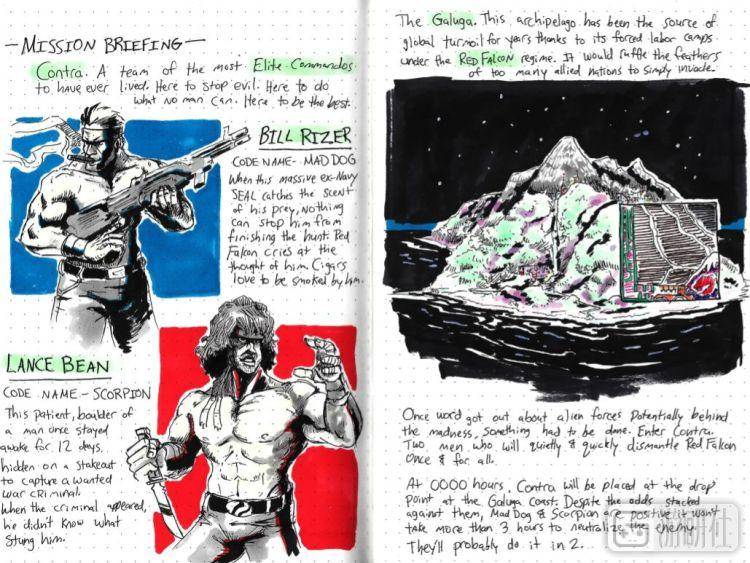 —MISSION BRIEFING—
Contra. A team of the most Elite Commandos
to have ever lived. Here to stop evil. Here to do
what no man can. Here to be the best.
BILL RIZER
CODE NAME- MAD DOG
When this massive ex-Navy
SEAL catches the scent
of his prey, nothing
can stop him from
finishing the hunt. Red
Falcon cries at the
thought of him. Cigars
love to be smoked by him.
LANCE BEAN
CODE NAME - SCORPION
This patient, boulder of
a man once stayed
awake for 12 days,
hidden on a stakeout
to capture a wanted
war criminal.
When the criminal appeared,
he didn't know what
stung him.
The Galuga. This archipelago has been the source of
global turmoil for years thanks to its forced labor camps
under the RED FALCON regime. It would ruffle the feathers
of too many allied nations to simply invade.
Once word got out about alien forces potentially behind
the madness, something had to be done. Enter Contra.
Two men who will quietly & quickly dismantle Red Falcon
once & for all.
At 0000 hours, Contra will be placed at the drop
point at the Galuga Coast. Despite the odds stacked
against them, Mad Dog & Scorpion are positive it won't
take more than 3 hours to neutralize the enemy
They'll probably do it in 2...
游研社